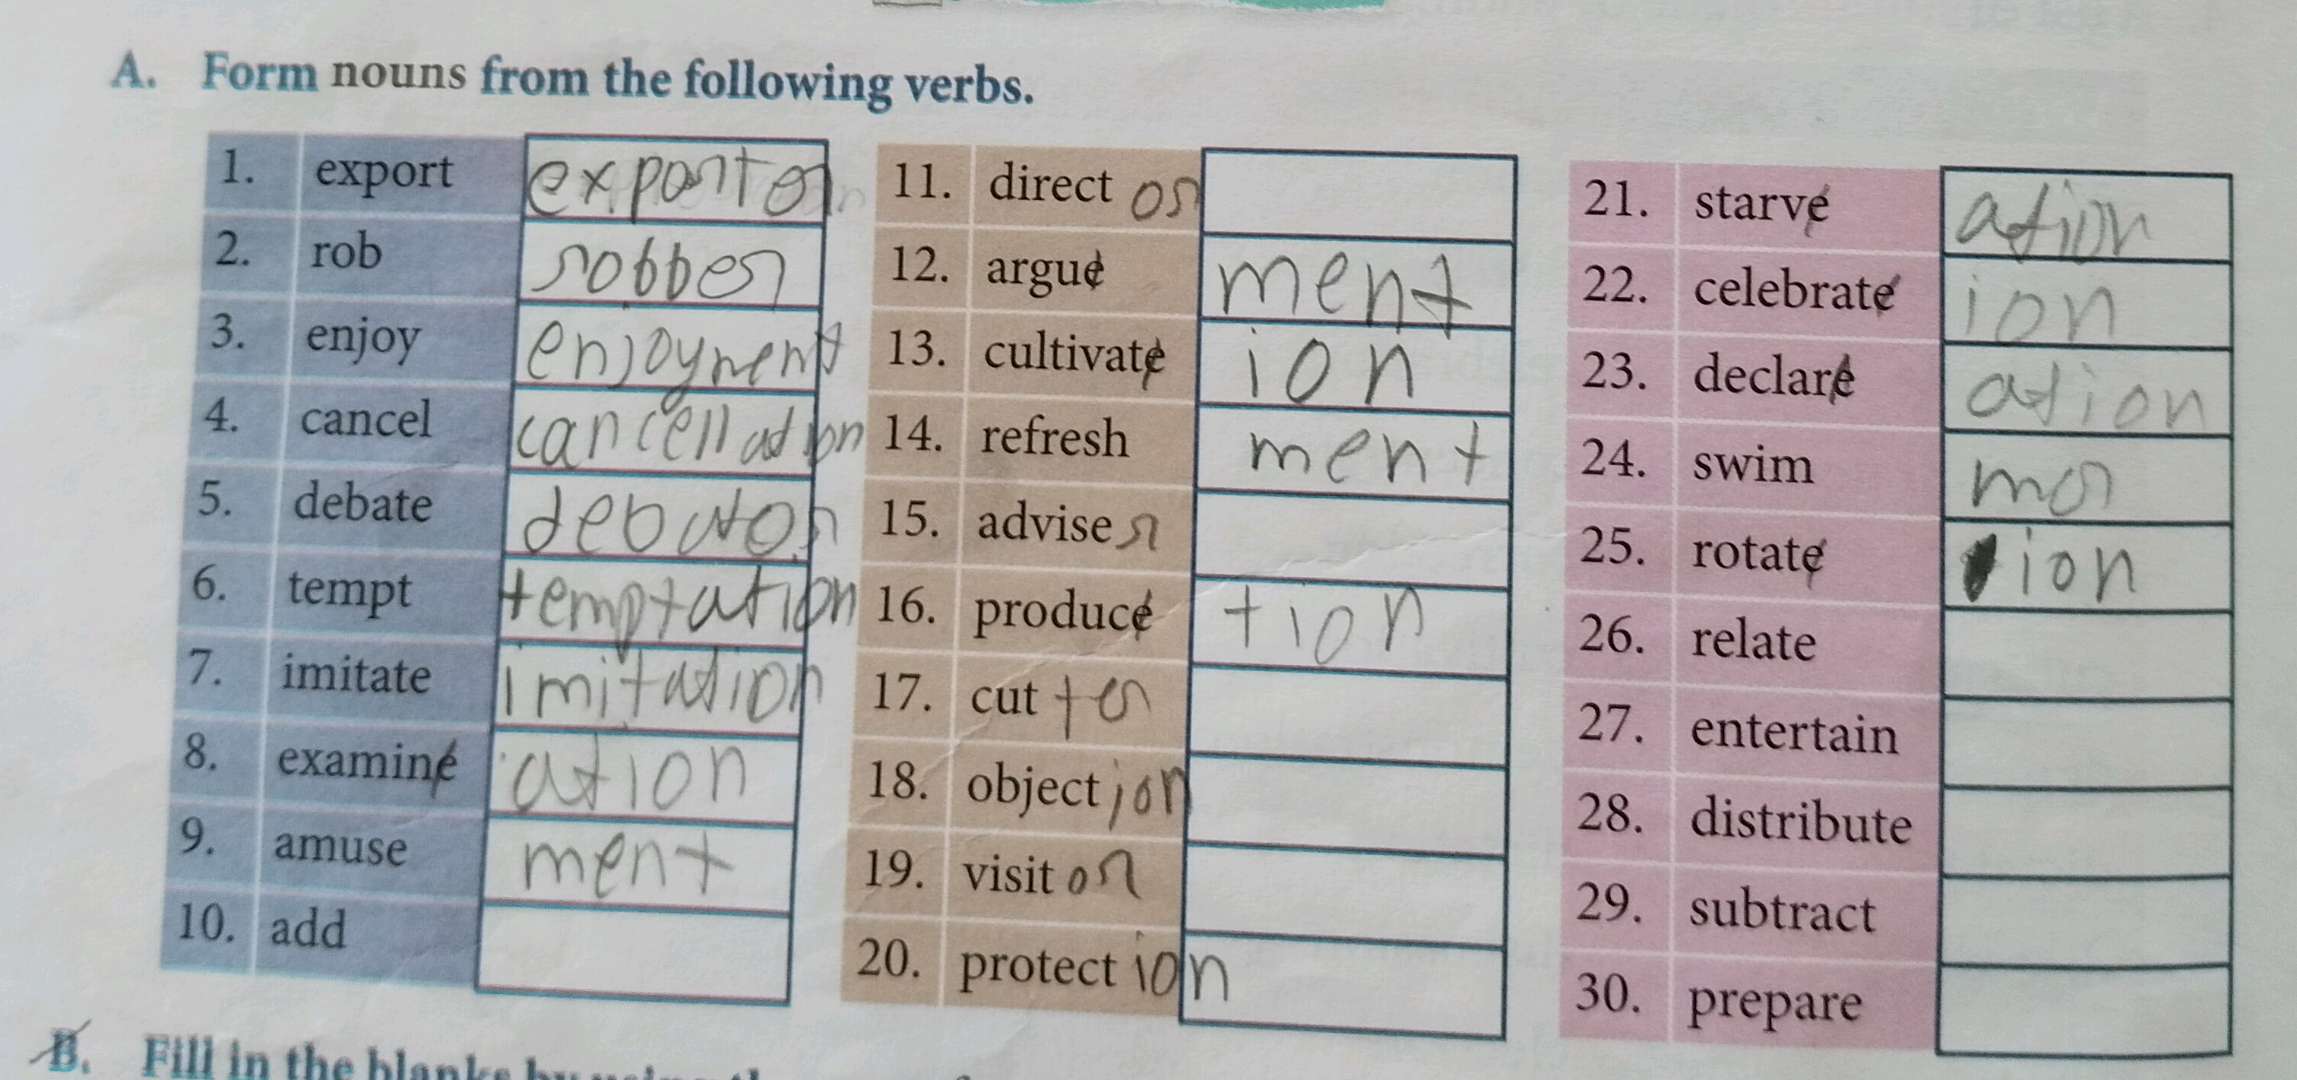 A. Form nouns from the following verbs.
1. export exporter
2. rob robber
3. enjoy enjoyment
4. cancel cancellation
5. debate debator
6. tempt temptation
7. imitate imitation
8. examine ation
9. amuse ment
10. add
11. direct or
12. argue ment
13. cultivate ion
14. refresh ment
15. advise r
16. produce tion
17. cut ter
18. object ion
19. visit or
20. protect ion
21. starve ation
22. celebrate ion
23. declare ation
24. swim mer
25. rotate ion
26. relate
27. entertain
28. distribute
29. subtract
30. prepare
B. Fill in the blanks by using